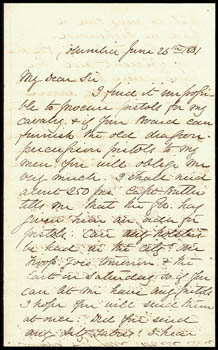 Columbia June 25th 1861
My Dear Sir
I find it impossi
ble to procure pistols for my
cavalry & if your Board can
furnish the old dragoon
percussion pistols to my
men you will oblige me
very much. I shall need
about 250 pr. Capt. Butler
tells me that the Gov. has
given him an order for
pistols. Can any holsters
be had in the city? One
troop goes tomorrow & the
last on Saturday so if you
can let me have any pistols
I hope you will send them
at once. Did you send
any I hear